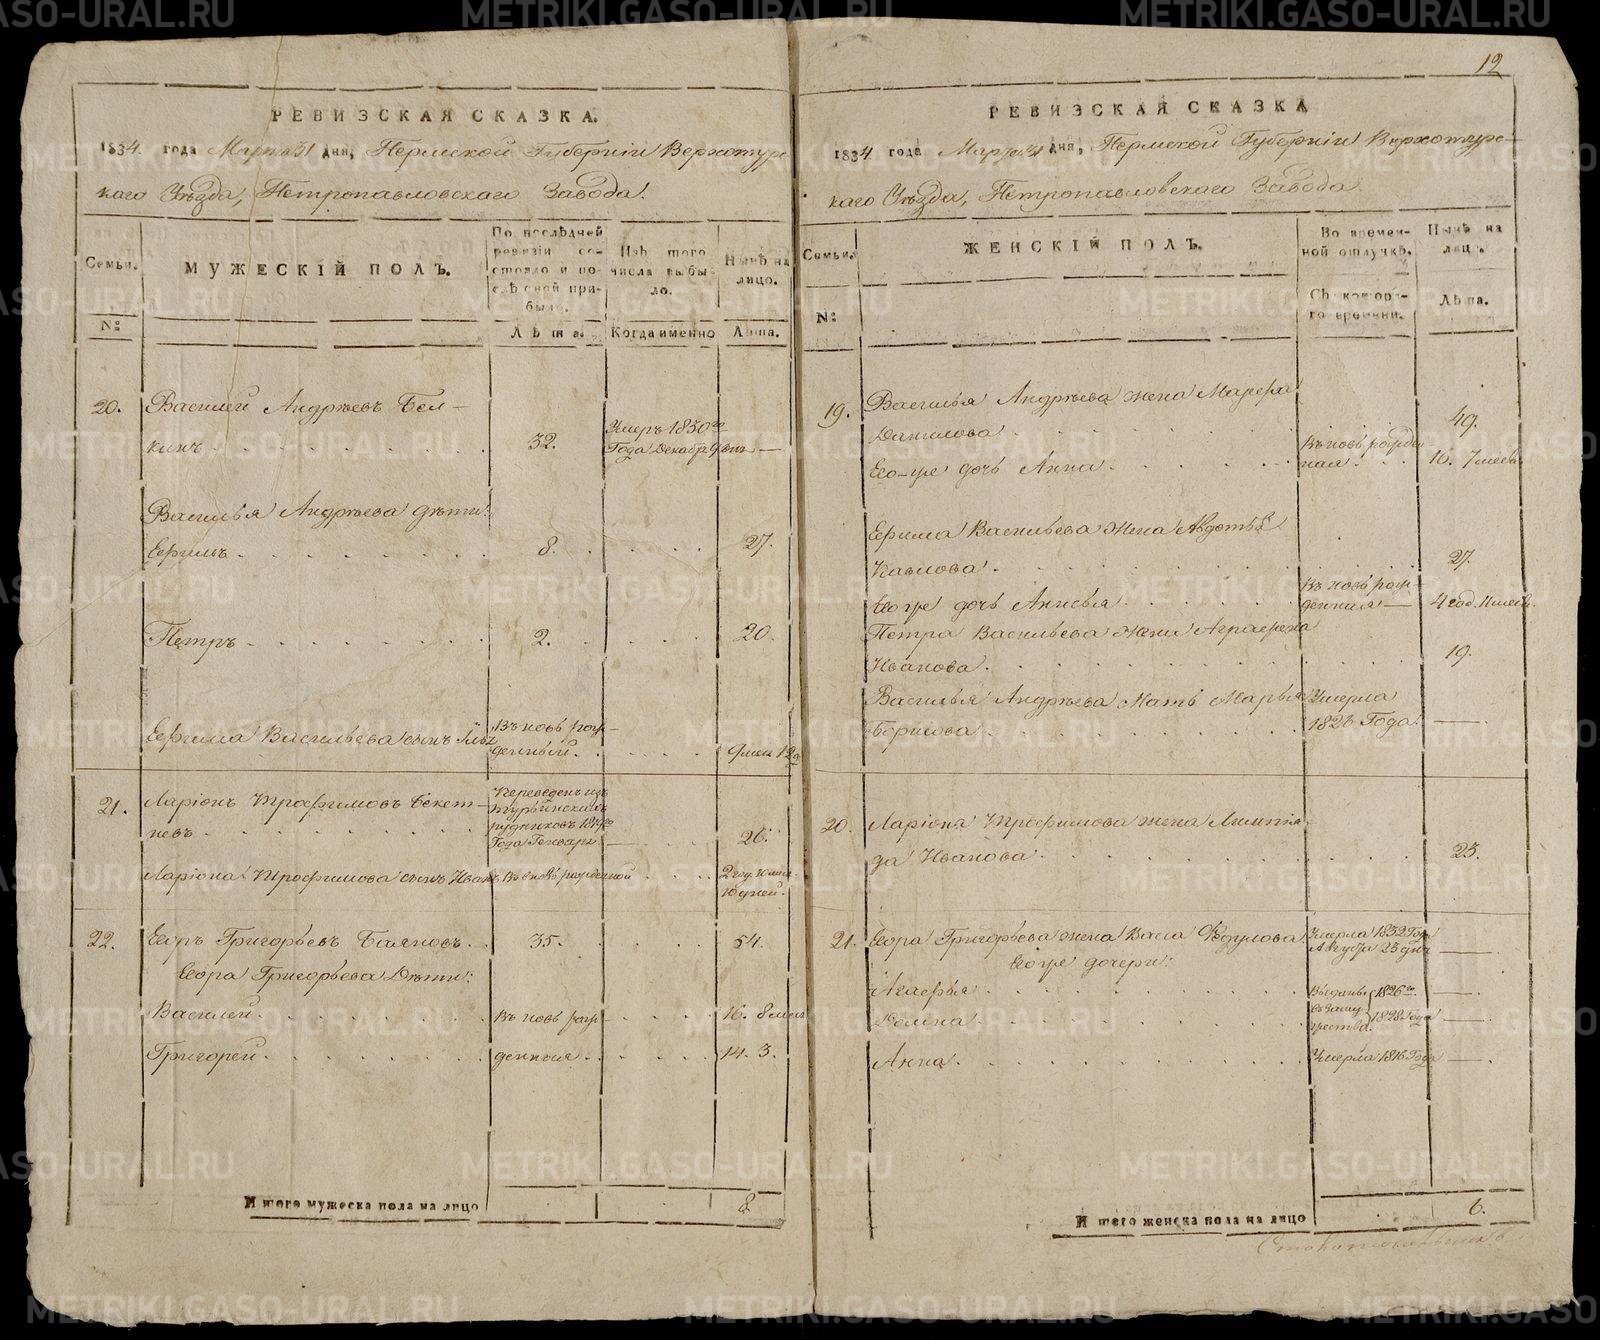 12
РЕВИЗСКАЯ СКАЗКА.
1834. года Марта 31 дня, Пермской Губерніи Верхотурс-
каго Уѣзда, Петропавловскаго Завода.
Семьи.
№
МУЖЕСКІЙ ПОЛЪ.
По послѣдней
ревизіи со-
стояло и по-
слѣ оной при-
было.
Лѣта.
Изъ того
числа выбы-
ло.
Когда именно
Нынѣ на
лицо.
Лѣта.
20. Василей Андрѣевъ Бел-
кинъ 32. Умеръ 1830го
Года Декабр 9 дня —
Василья Андрѣева дѣти:
Ефимъ 8. 27.
Петръ 2. 20.
Ефима Васильева сынъ Въ новь рож-
денный 9 мес. 12
21. Ларіонъ Трофимовъ Бекет-
невъ Переведенъ изъ
Турьинскихъ
рудниковъ
Года Генваря 26.
Ларіона Трофимова сынъ Иванъ Въ новь рожденной 2 год.
10 дней.
22. Егоръ Григорьевъ Баяновъ 35. 54.
Егора Григорьева Дѣти:
Василей Въ новь рож- 16. 8 мес
Григорей денныя 14. 3.
И того мужеска пола на лицо 8.
РЕВИЗСКАЯ СКАЗКА
1834 года Марта 31 дня, Пермской Губерніи Верхотурс-
каго Уѣзда, Петропавловскаго Завода.
Семьи.
№
ЖЕНСКІЙ ПОЛЪ.
Во времен-
ной отлучкѣ.
Съ котора-
го времени.
Нынѣ на
лицо.
Лѣта.
19. Василья Андрѣева жена Марфа
Данилова 49.
Его-же дочь Анна Въ новь рожден-
ная 16. 7 месц.
Ефима Васильева Жена Авдотья
Павлова 27.
Его же дочь Анисья Въ новь рож-
денная — 4 год. 11 месц.
Петра Васильева Жена Аграфена
Иванова 19.
Василья Андрѣева Мать Марья
Борисова Умерла
Года —
20. Ларіона Трофимова жена Лимпія-
да Иванова 25.
21. Егора Григорьева жена Васса Федулова Умерла 1832 Года
Августа 25 дня —
Его же дочери:
Агафья Выданы 1826го —
Домна в замужества 1828 Года —
Анна Умерла 1816 Года —
И того женска пола на лицо 6.
METRIKI.GASO-URAL.RU